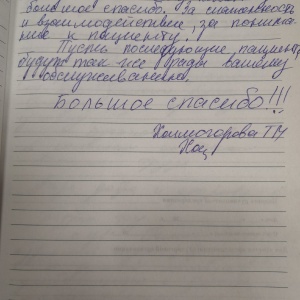 большое спасибо. За
и взаимодействии, за понима-
ние к пациенту.
Пусть последующие пациенты
будут так же рады вашему
обслуживанию.
Большое спасибо!!!
Колмогорова ТМ